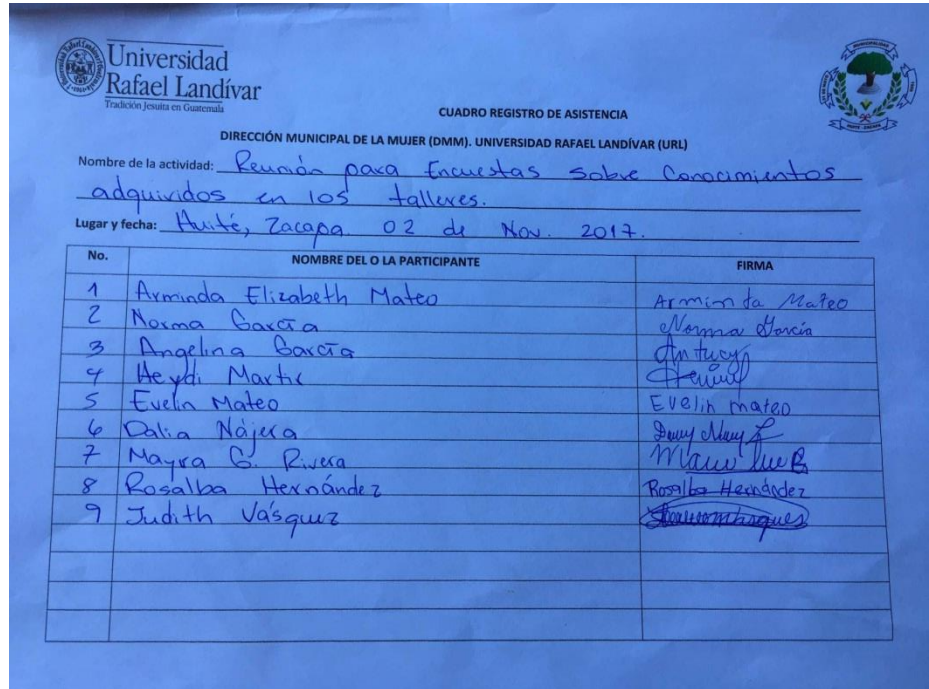 Universidad
Rafael Landívar
Tradición Jesuita en Guatemala
MUNICIPALIDAD
CUADRO REGISTRO DE ASISTENCIA
DIRECCIÓN MUNICIPAL DE LA MUJER (DMM). UNIVERSIDAD RAFAEL LANDÍVAR (URL)
Nombre de la actividad: Reunión para Encuestas sobre Conocimientos
adquiridos en los talleres.
Lugar y fecha: Huité, Zacapa. 02 de Nov. 2017.
No. NOMBRE DEL O LA PARTICIPANTE FIRMA
1 Arminda Elizabeth Mateo Arminda Mateo
2 Norma García Norma García
3 Angelina García
4 Heydi Martir
5 Evelin Mateo Evelin mateo
6 Dalia Nájera
7 Mayra G. Rivera
8 Rosalba Hernández Rosalba Hernández
9 Judith Vásquez